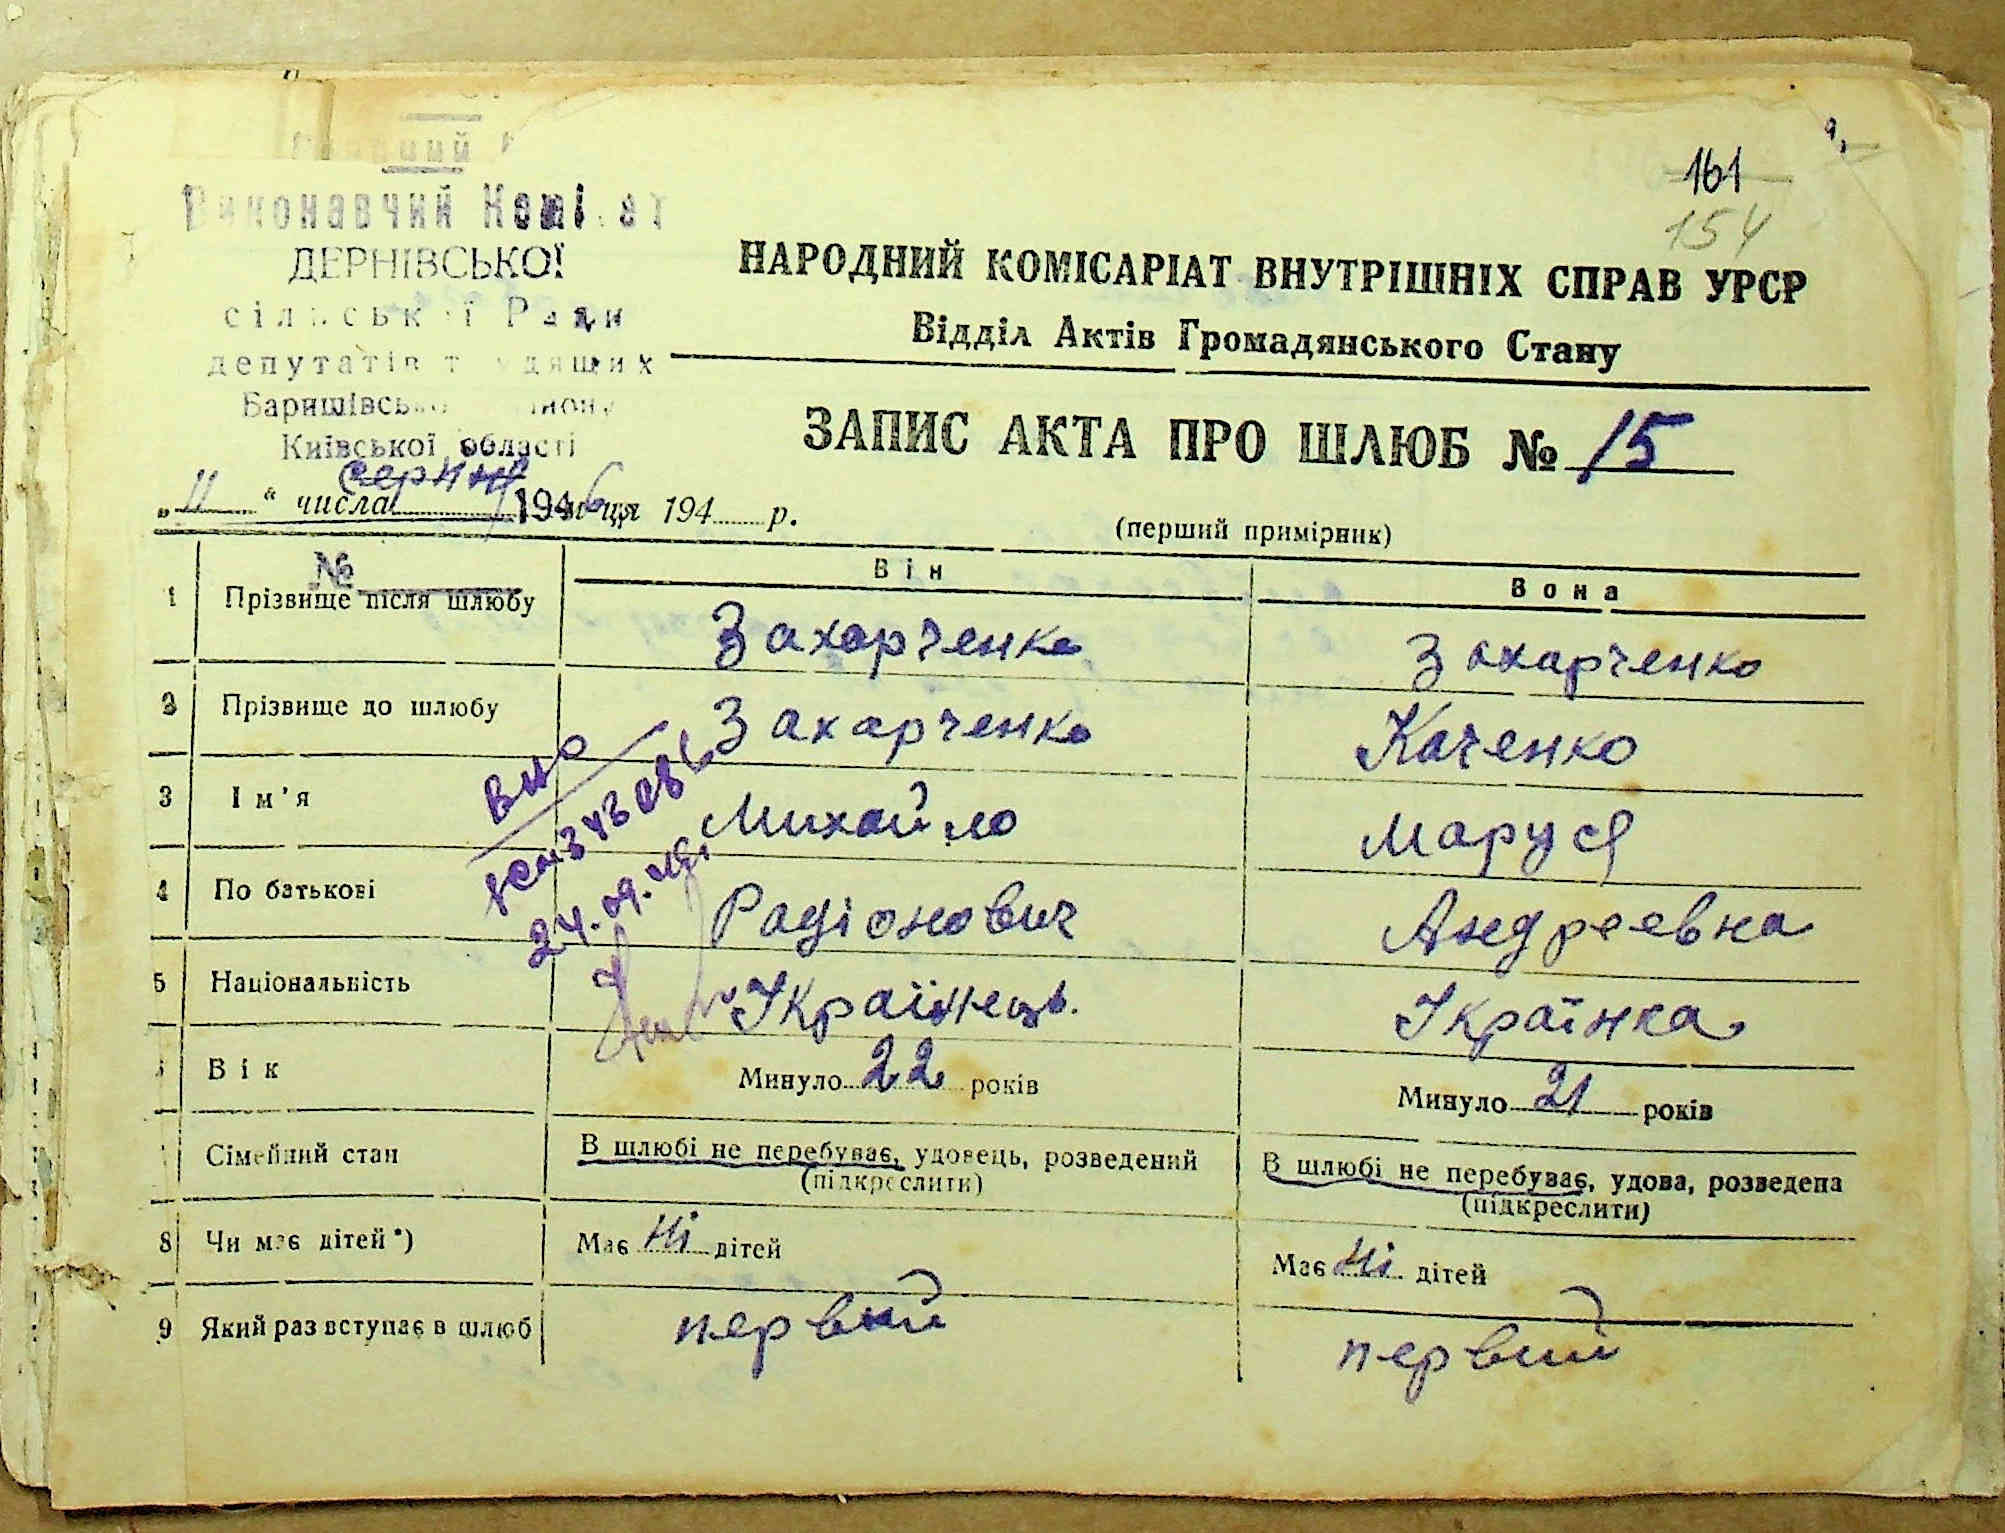 161
154
Виконавчий Комітет
ДЕРНІВСЬКОЇ
сільської Ради
депутатів трудящих
Баришівського району
Київської області
НАРОДНИЙ КОМІСАРІАТ ВНУТРІШНІХ СПРАВ УРСР
Відділ Актів Громадянського Стану
ЗАПИС АКТА ПРО ШЛЮБ № 15
„ 11 “ числа серпня 1946 місяця 194 р.
(перший примірник)
№
Він Вона
1 Прізвище після шлюбу Захарченко Захарченко
2 Прізвище до шлюбу Захарченко Каченко
3 Ім'я Михайло Маруся
4 По батькові Радіонович Андреевна
5 Національність Українець. Українка
Вік Минуло 22 років Минуло 21 років
Сімейний стан В шлюбі не перебуває, удовець, розведений В шлюбі не перебуває, удова, розведена
(підкреслити) (підкреслити)
8 Чи має дітей*) Має Ні дітей Має Ні дітей
9 Який раз вступає в шлюб первий первий